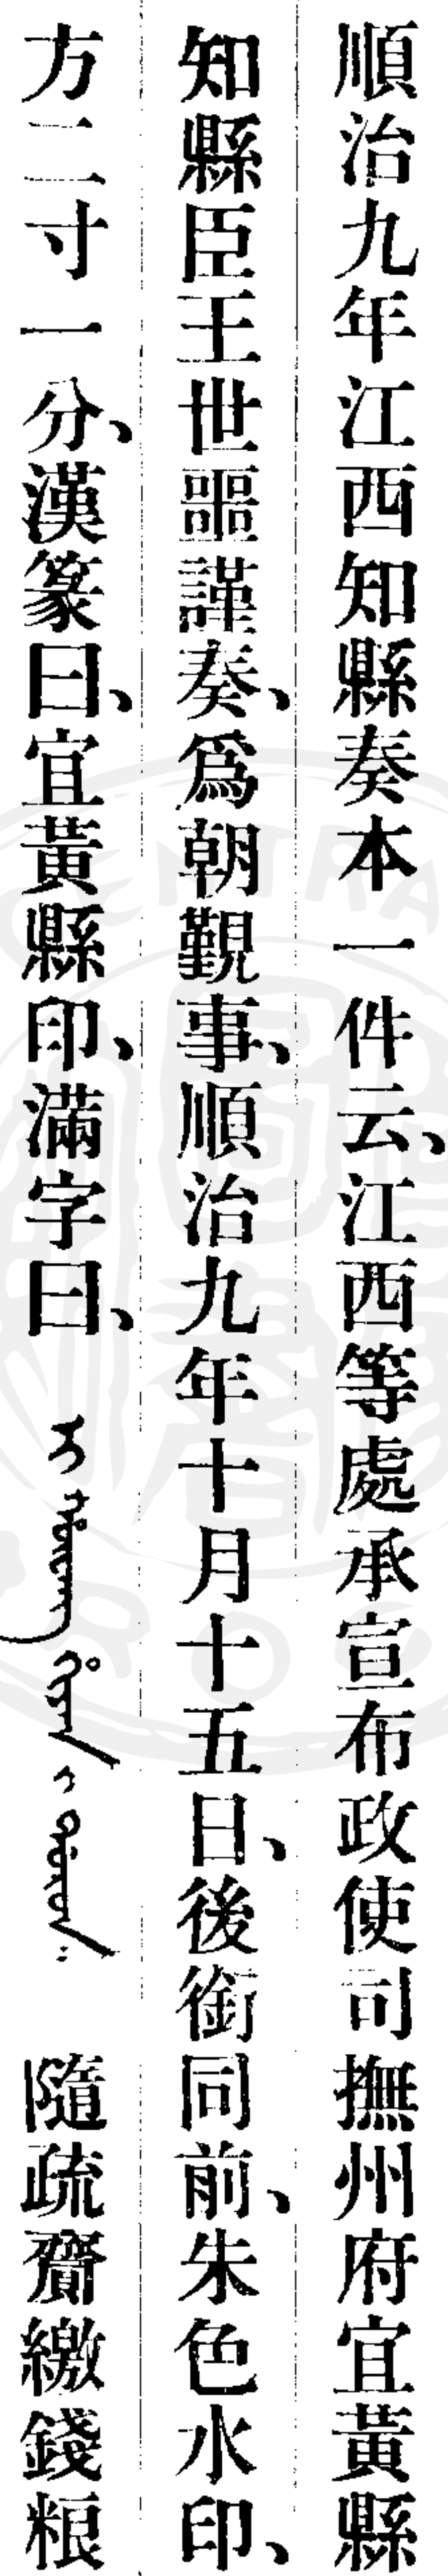 順治九年江西知縣奏本一件云、江西等處承宣布政使司撫州府宜黃縣
知縣臣王世噩謹奏、爲朝覲事、順治九年十月十五日、後銜同前、朱色水印、
方二寸一分、漢篆曰、宜黃縣印、滿字曰、隨疏齎繳錢粮